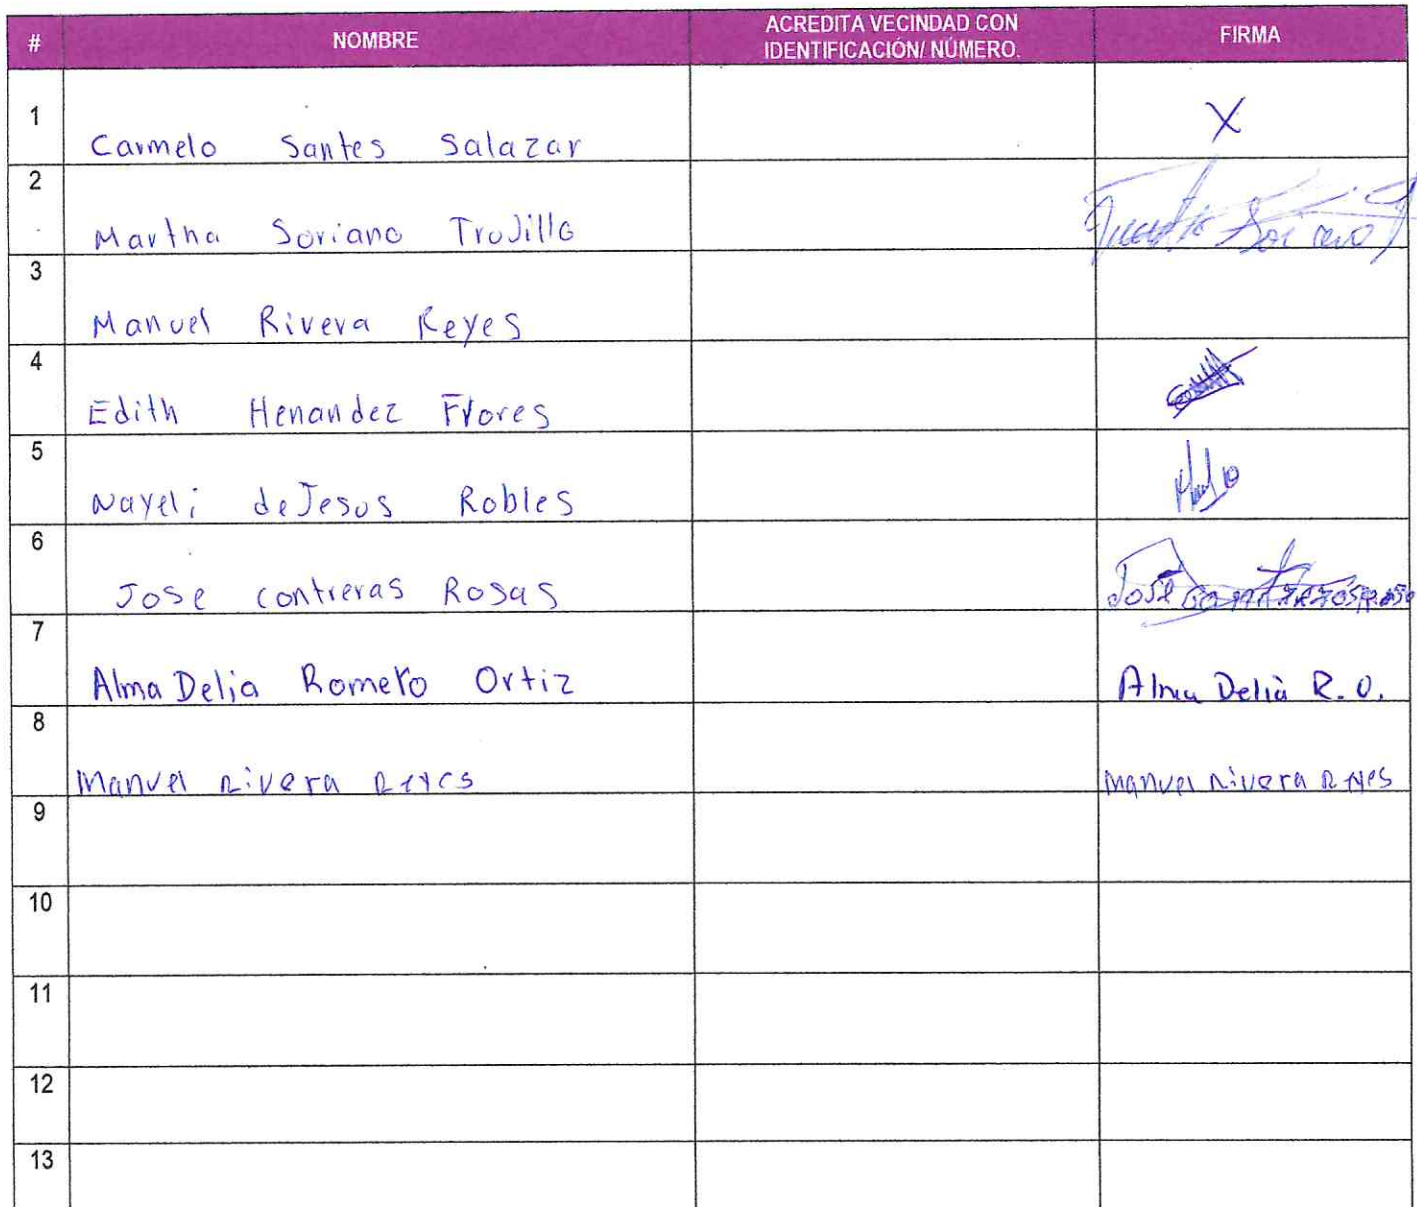 # NOMBRE ACREDITA VECINDAD CON IDENTIFICACIÓN/ NÚMERO. FIRMA
1 Carmelo Santes Salazar X
2 Martha Soriano TroJillo
3 Manuel Rivera Reyes
4 Edith Henandez Flores
5 Nayeli deJesus Robles
6 Jose contreras Rosas Jose
7 Alma Delia Romero Ortiz Alma Delia R. O.
8 Manuel Rivera Reyes Manuel Rivera Reyes
9
10
11
12
13